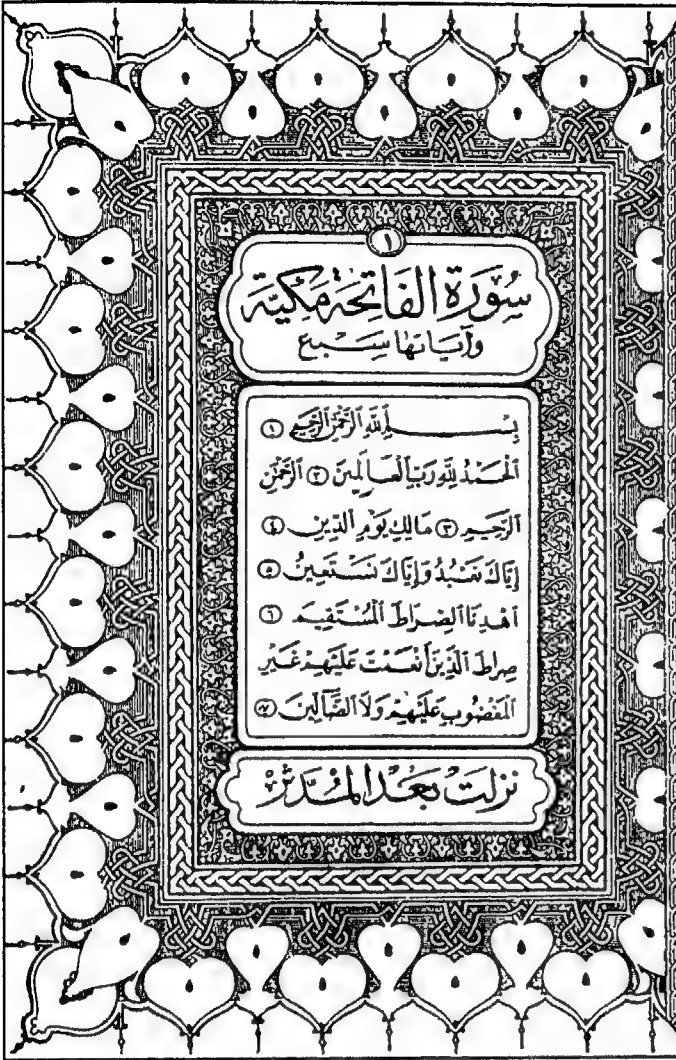 ١
سُورَةُ الفَاتِحَةِ مَكِّيَّة
وَآيَاتهَا سَبْع
بِسْمِ ٱللَّهِ ٱلرَّحْمَٰنِ ٱلرَّحِيمِ ١
ٱلْحَمْدُ لِلَّهِ رَبِّ ٱلْعَالَمِينَ ٢ ٱلرَّحْمَٰنِ
ٱلرَّحِيمِ ٣ مَالِكِ يَوْمِ ٱلدِّينِ ٤
إِيَّاكَ نَعْبُدُ وَإِيَّاكَ نَسْتَعِينُ ٥
ٱهْدِنَا ٱلصِّرَاطَ ٱلْمُسْتَقِيمَ ٦
صِرَاطَ ٱلَّذِينَ أَنْعَمْتَ عَلَيْهِمْ غَيْرِ
ٱلْمَغْضُوبِ عَلَيْهِمْ وَلَا ٱلضَّآلِّينَ ٧
نزلَتْ بَعْدَ المُدَّثِّرْ